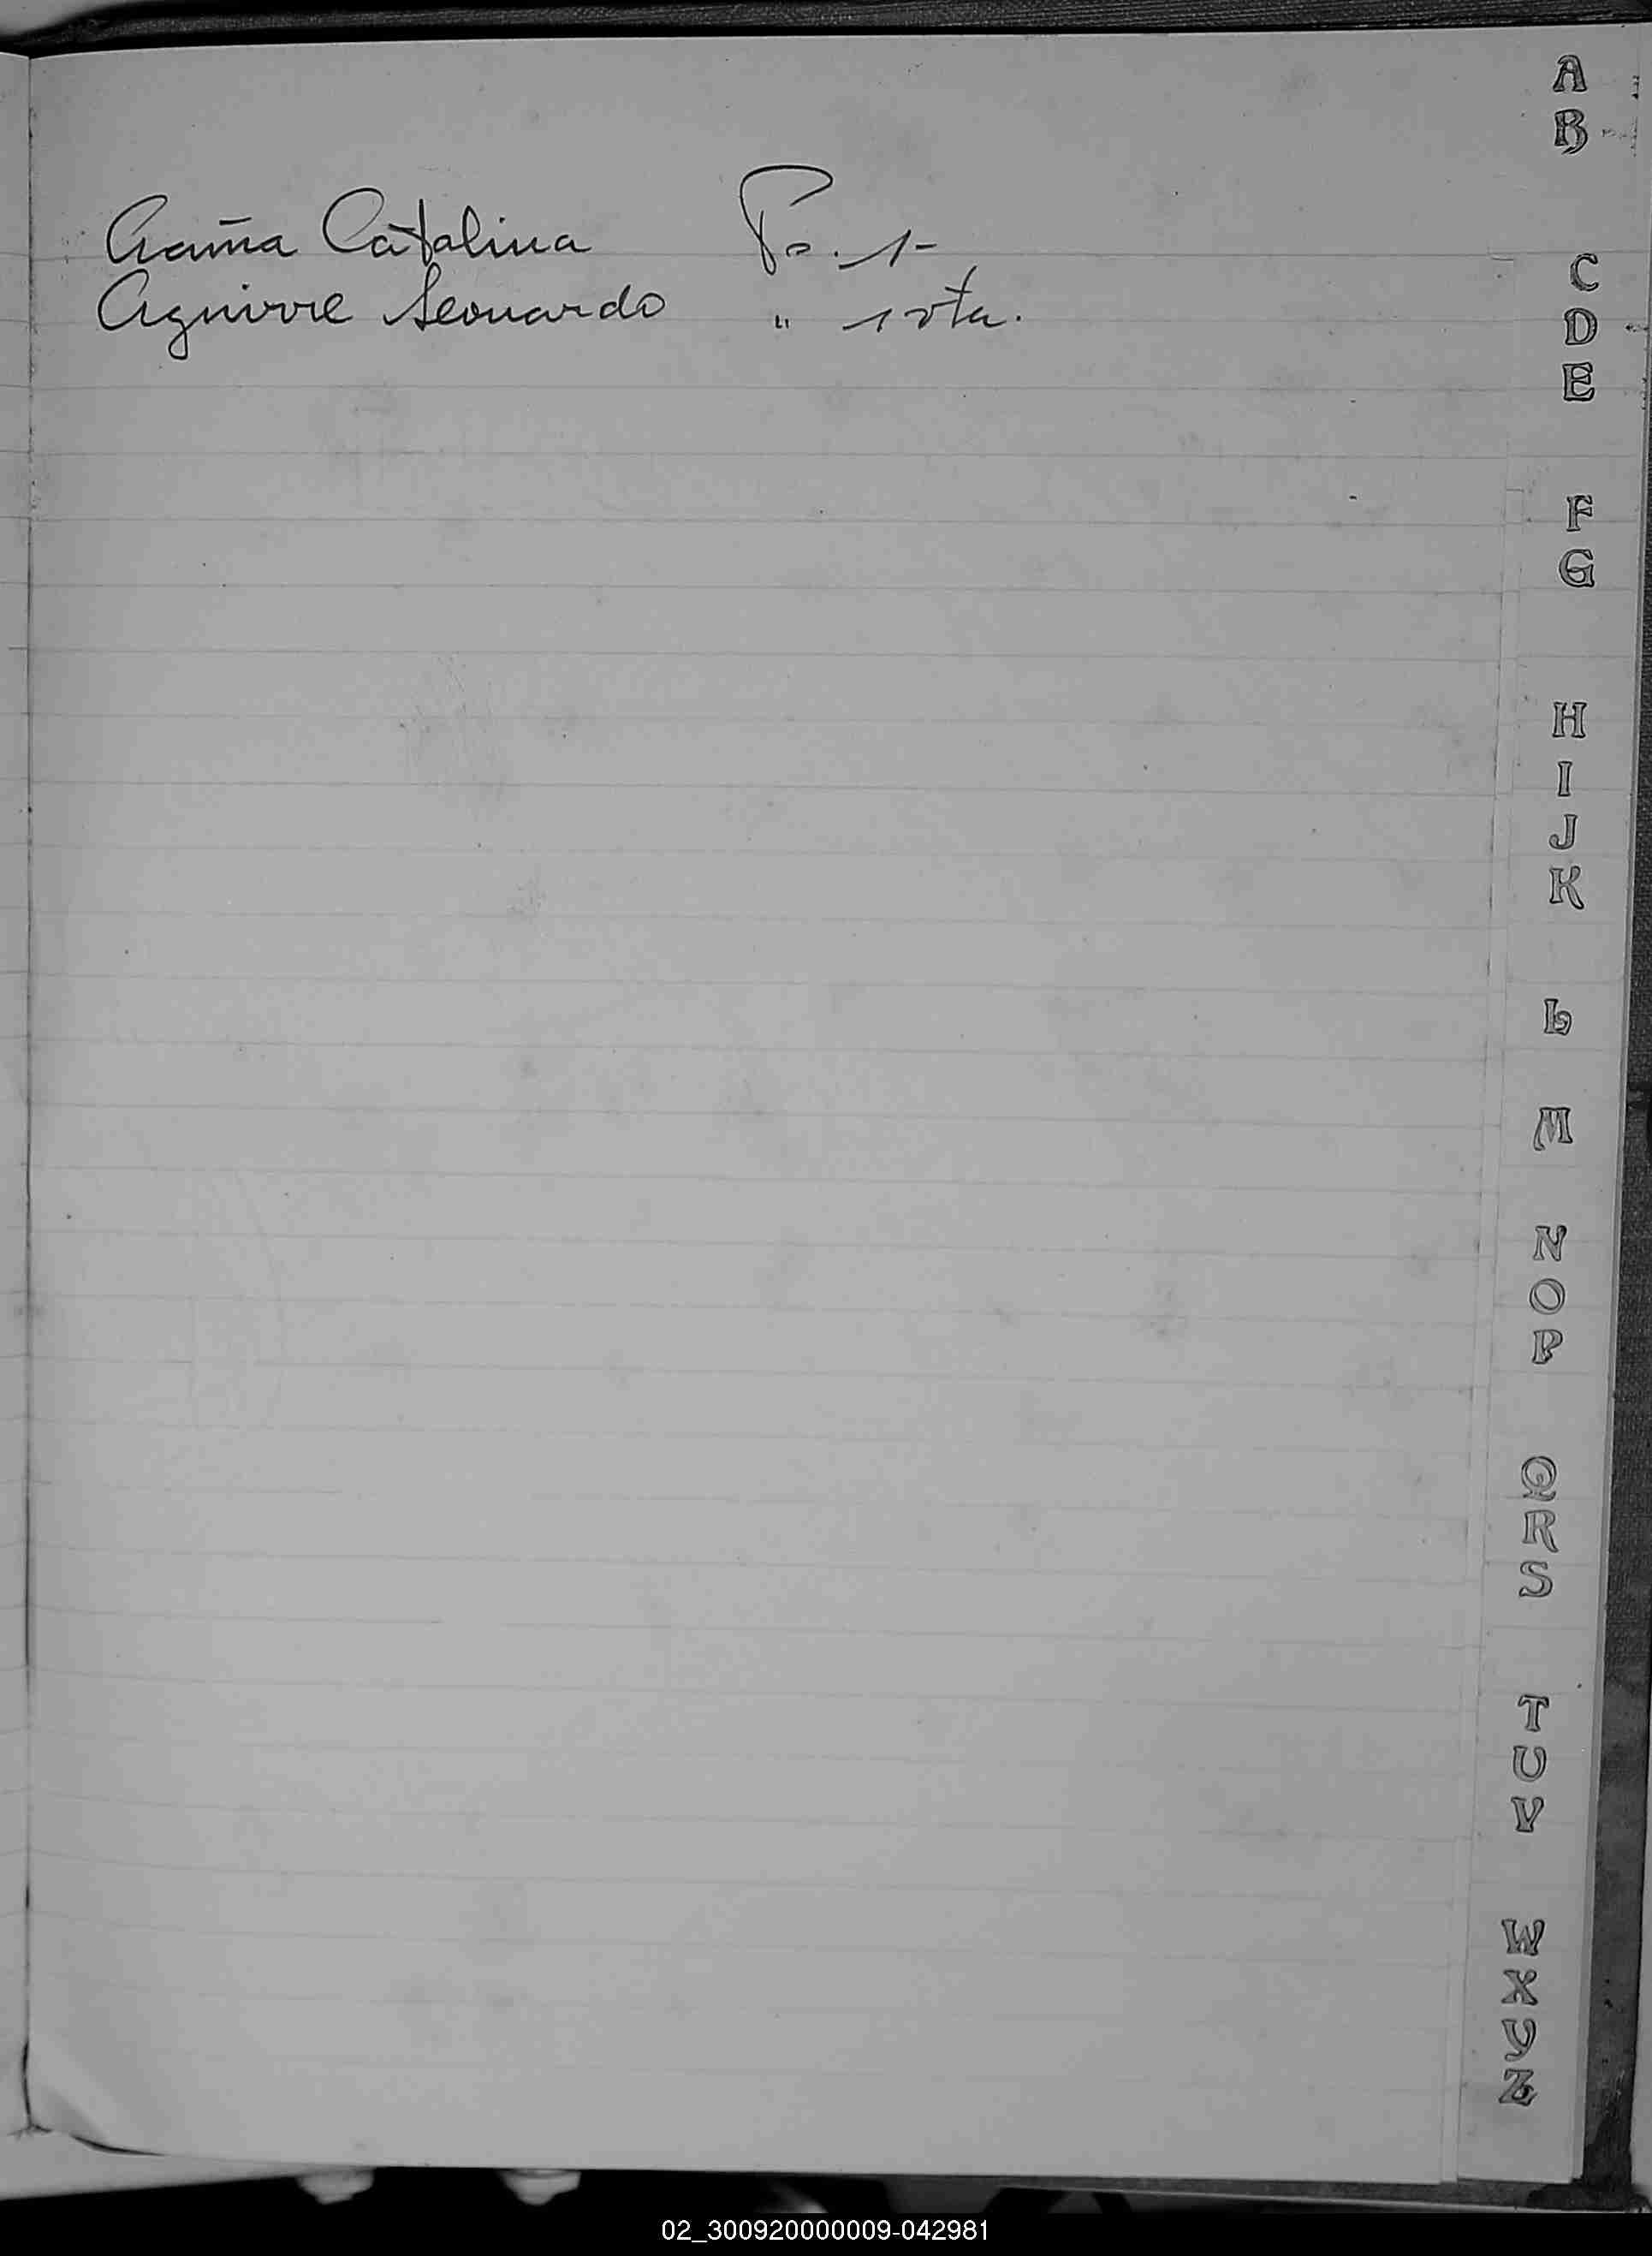 A
B
Acuña Catalina Fo. 1
Aguirre Leonardo " 1 vta.
C
D
E
F
G
H
I
J
K
L
M
N
O
P
Q
R
S
T
U
V
W
X
Y
Z
02_300920000009-042981